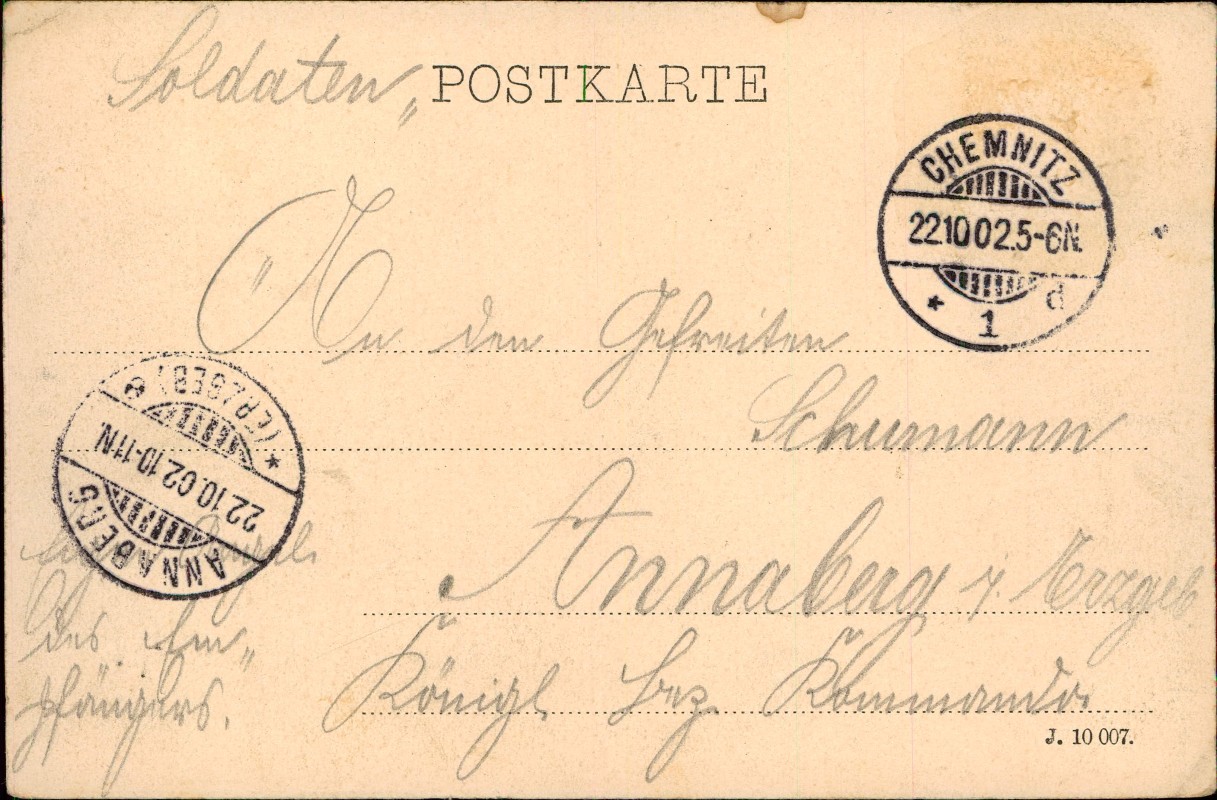 Soldaten„ POSTKARTE
CHEMNITZ
22 10 02. 5-6N.
* 1 d
An den Gefreiten
Schumann
Annaberg i. Erzgeb
Königl. Bez. Kommando
ANNABERG
22.10.02. 10-11N.
* (ERZGEB.) e
des Em„
pfängers.
J. 10 007.